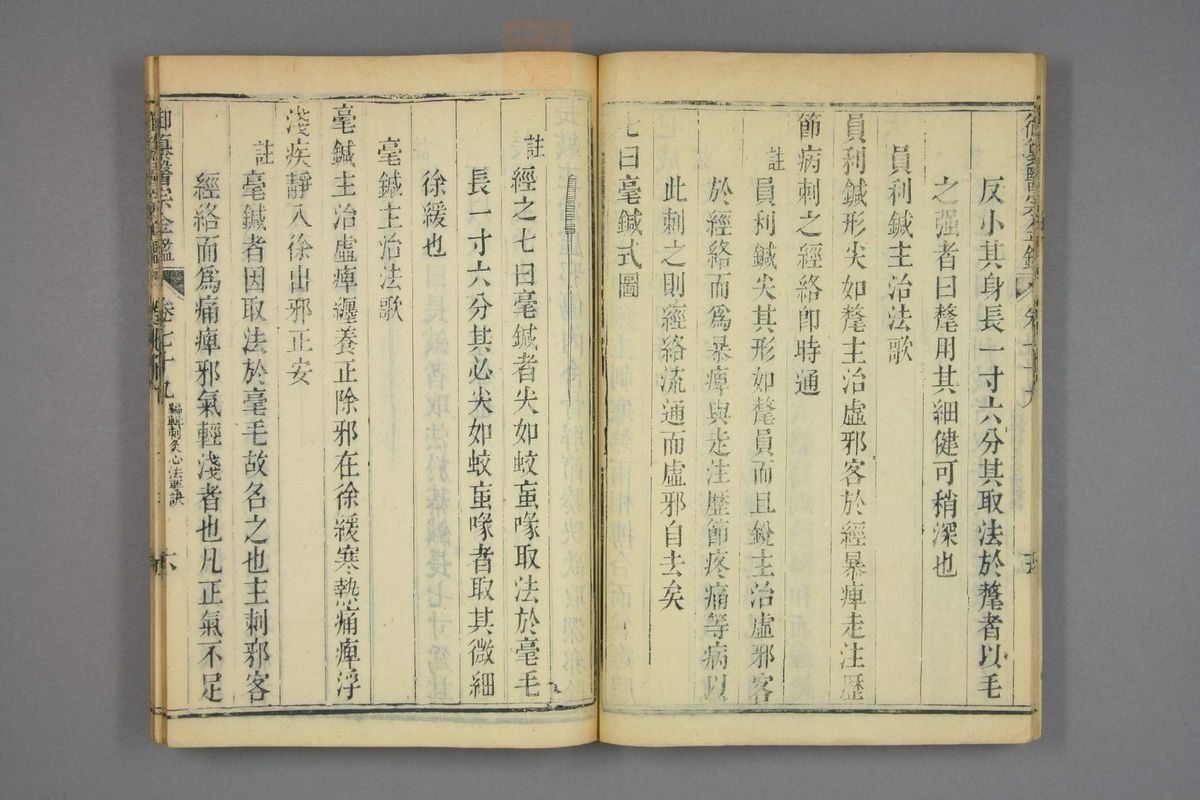 反小其身長一寸六分其取法於氂者以毛
之强者曰氂用其細健可稍深也
員利鍼主治法歌
員利鍼形尖如氂主治虛邪客於經暴痺走注歷
節病刺之經絡卽時通
註
員利鍼尖其形如氂員而且銳主治虛邪客
於經絡而爲暴痺與走注歷節疼痛等病以
此刺之則經絡流通而虛邪自去矣
七曰毫鍼式圖
註
經之七曰毫鍼者尖如蚊䖟喙取法於毫毛
長一寸六分其必尖如蚊䖟喙者取其微細
徐緩也
毫鍼主治法歌
毫鍼主治虛痺纏養正除邪在徐緩寒熱痛痺浮
淺疾靜入徐出邪正安
註
毫鍼者因取法於毫毛故名之也主刺邪客
經絡而爲痛痺邪氣輕淺者也凡正氣不足
御纂醫宗金鑑
卷七十九
編輯刺灸心法要訣
六